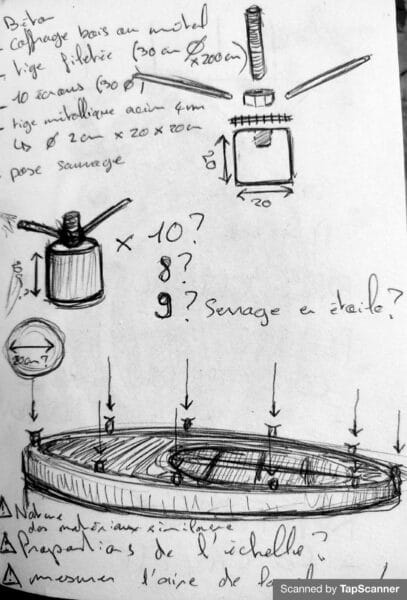 Béton
- coffrage bois ou métal
- tige filetée (30 cm Ø
x 200 cm)
- 10 écrous (30 Ø)
- tige métallique acier 4 mm
↳ Ø 2 cm x 20 x 20 cm
- pose sauvage
20
x 10?
8?
9? Serrage en étoile?
20cm?
⚠ Nature
des matériaux similaire
⚠ Proportions de l'échelle?
⚠ mesurer l'aire de
Scanned by TapScanner